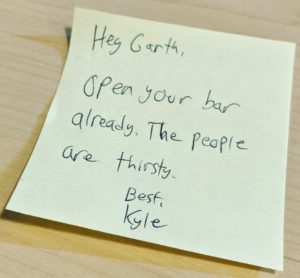 Hey Garth,
Open your bar
already. The people
are thirsty.
Best,
Kyle